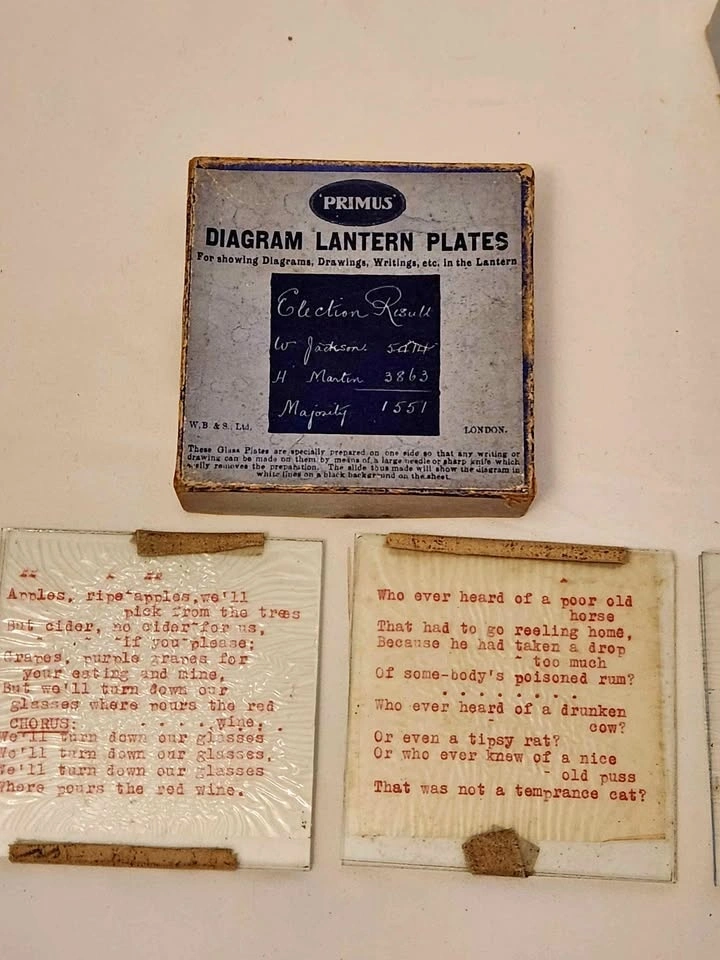 'PRIMUS'
DIAGRAM LANTERN PLATES
For showing Diagrams, Drawings, Writings, etc. in the Lantern
Election Result
W Jackson 5414
H Martin 3863
Majority 1551
W. B & S., Ltd.
LONDON.
These Glass Plates are specially prepared on one side so that any writing or
drawing can be made on them by means of a large needle or sharp knife which
removes the preparation. The slide thus made will show the diagram in
white lines on a black background on the sheet.
Apples, ripe apples, we'll
pick from the trees
But cider, no cider for us,
if you please;
Grapes, purple grapes for
your eating and mine,
But we'll turn down our
glasses where pours the red
CHORUS: . . . . wine.
We'll turn down our glasses
We'll turn down our glasses,
We'll turn down our glasses
Where pours the red wine.
Who ever heard of a poor old
horse
That had to go reeling home,
Because he had taken a drop
too much
Of some-body's poisoned rum?
. . . . . . . .
Who ever heard of a drunken
cow?
Or even a tipsy rat?
Or who ever knew of a nice
old puss
That was not a temprance cat?